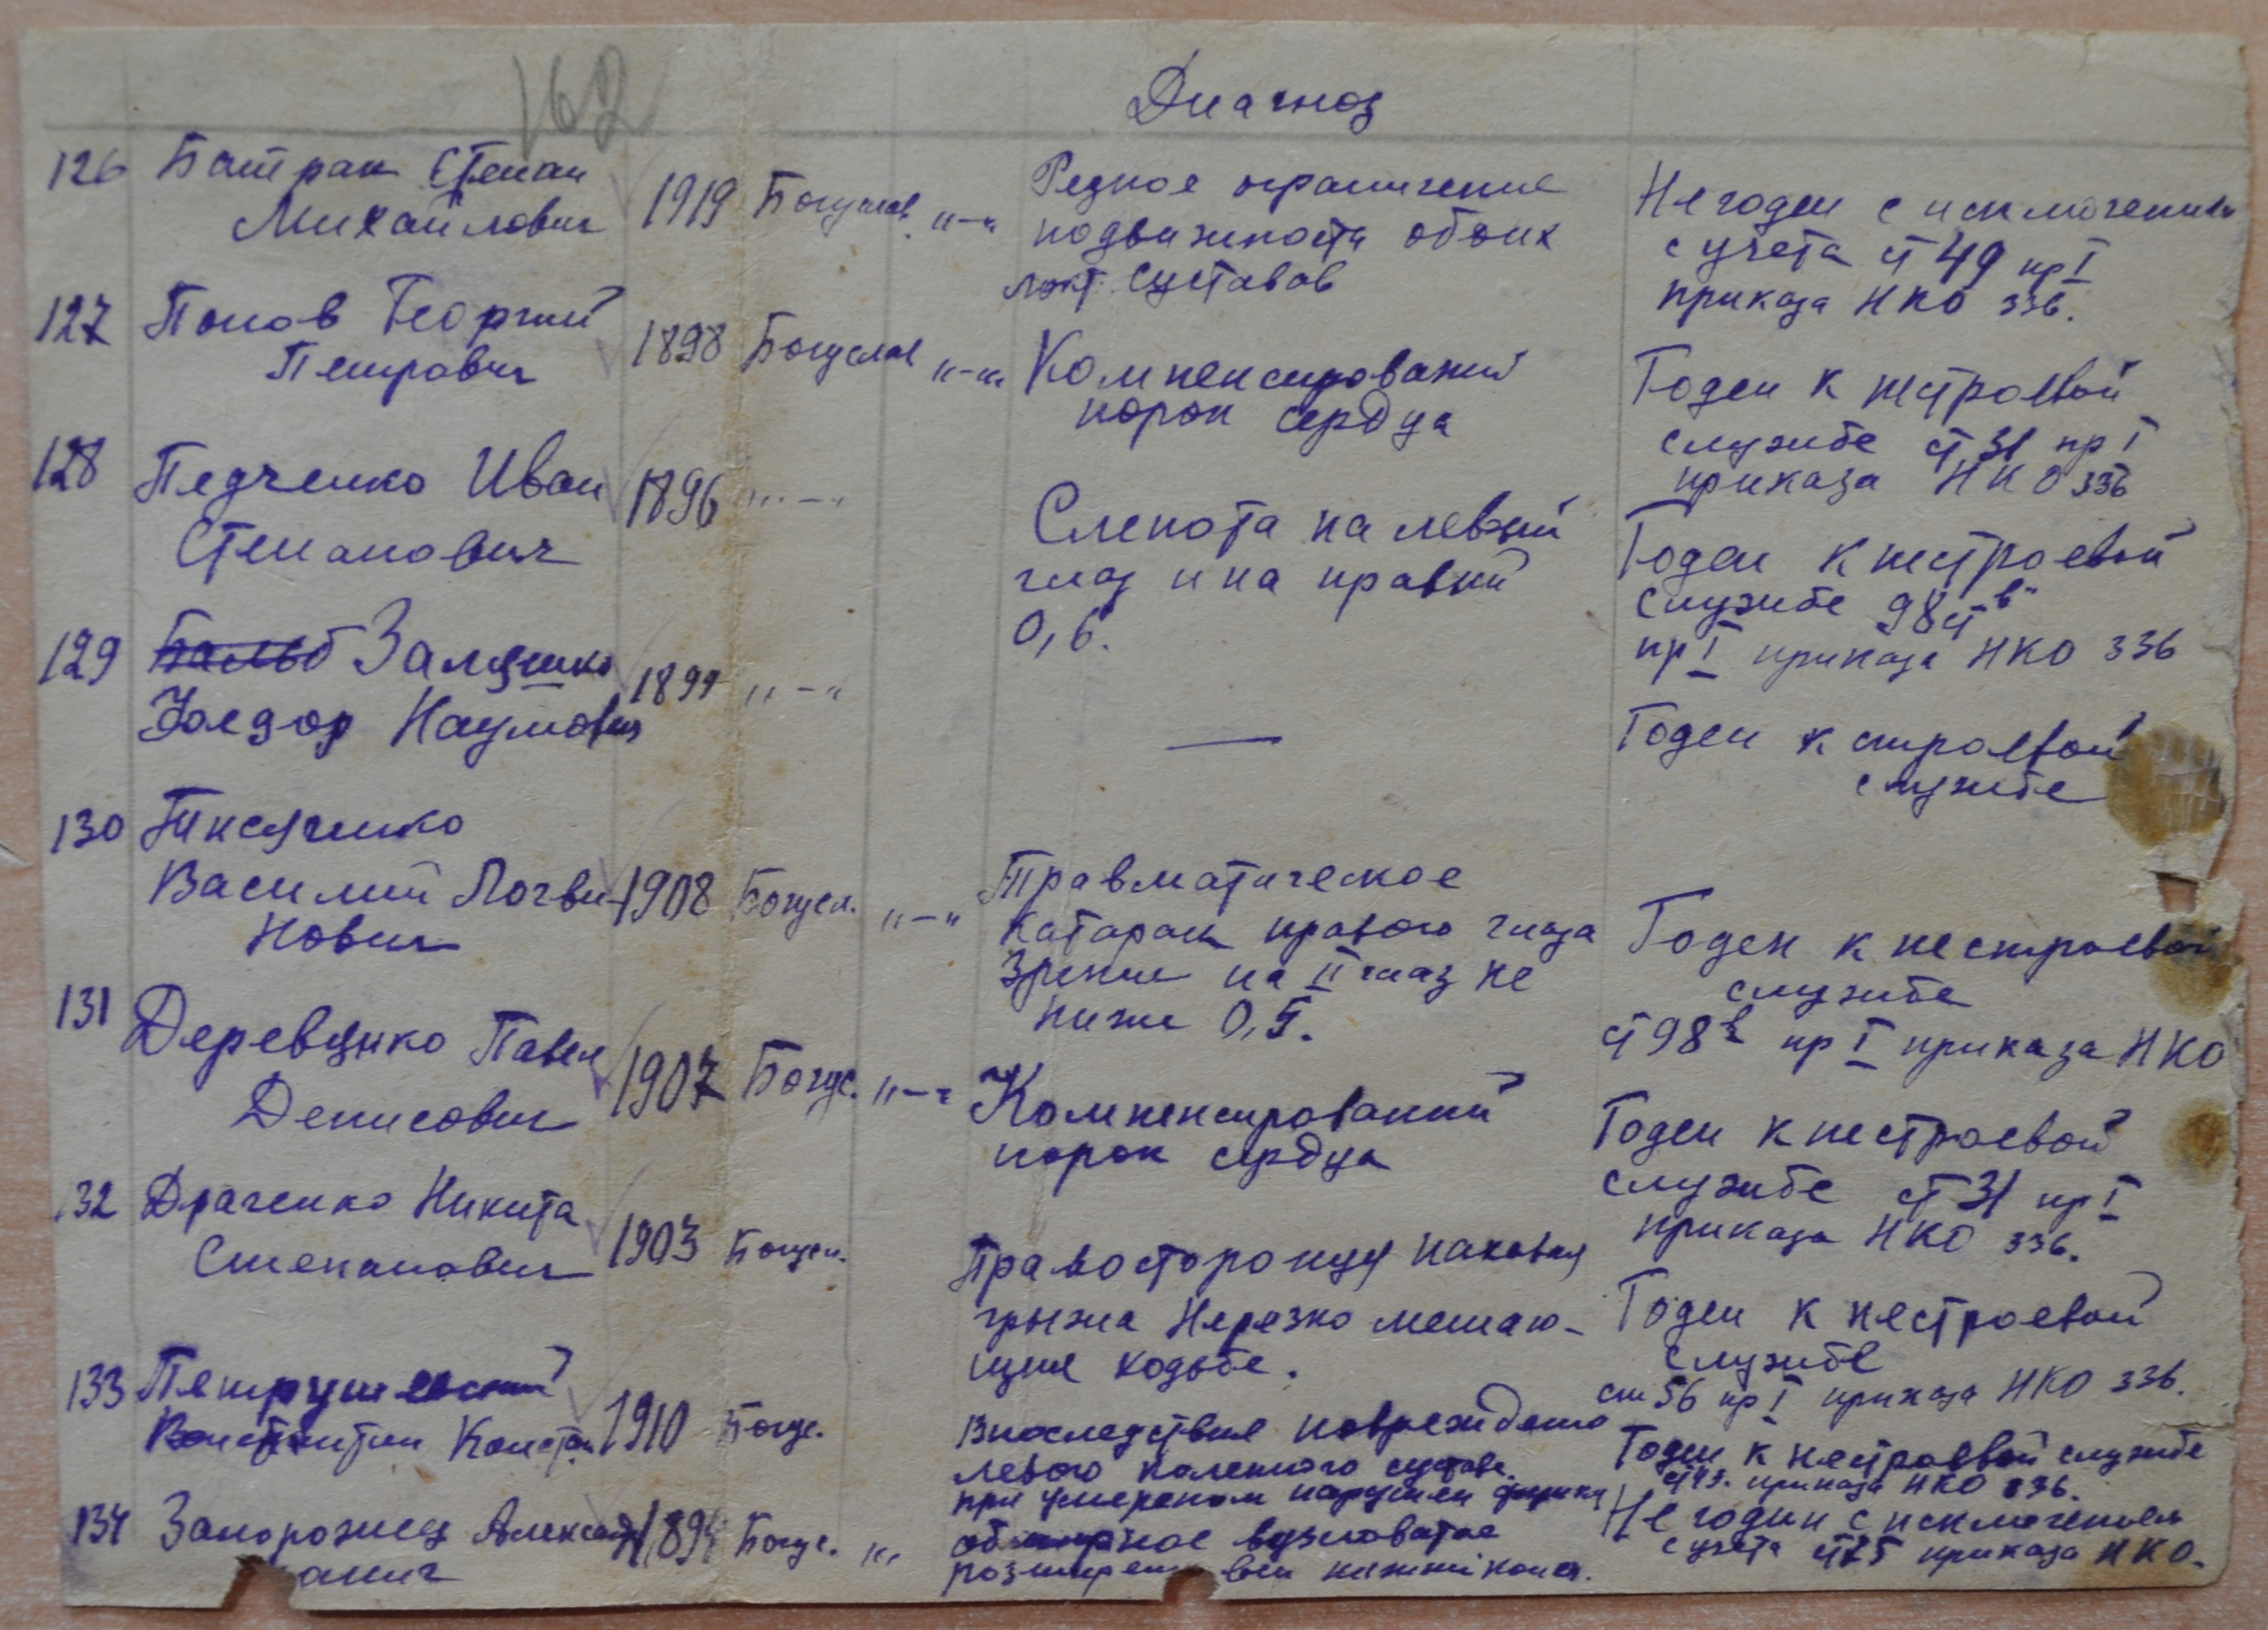 162
Диагноз
126 Батрак Степан
Михайлович
1919 Богуслав. "-"
Резкое ограничение
подвижности обоих
локт. суставов
Не годен с исключением
с учета ст 49 пр I
приказа НКО 336.
127 Попов Георгий
Петрович
1898 Богуслав "-"
Компенсированый
порок сердца
Годен к нестроевой
службе ст 31 пр I
приказа НКО 336
128 Педченко Иван
Степанович
1896 "-"
Слепота на левый
глаз и на правый
0,6.
Годен к нестроевой
службе 98 ст "в"
пр I приказа НКО 336
129 Залешко
Федор Наумович
1899 "-"
—
Годен к строевой
службе
130
Василий Логви-
нович
1908 Богусл. "-"
Травматическое
катарак правого глаза
Зрение на II глаз не
ниже 0,5.
Годен к нестроевой
службе
ст 98 в пр I приказа НКО
131 Деревянко Павел
Денисович
1907 Богус. "-"
Компенсированый
порок сердца
Годен к нестроевой
службе ст 31 пр I
приказа НКО 336.
132 Драченко Никита
Степанович
1903 Богусл.
Правостороняя паховая
грыжа Нерезко мешаю-
щая ходьбе.
Годен к нестроевой
службе
ст 56 пр I приказа НКО 336.
133 Петрушевский
Константин Констан.
1910 Богус.
Впоследствие повреждения
левого коленного сустава
при умереном нарушен функции
Годен к нестроевой службе
приказа НКО 336.
134 Запорожец Александр
1894 Богус. "
вузловатое
расширение вен нижни конеч.
Не годен с исключением
с учета приказа НКО.